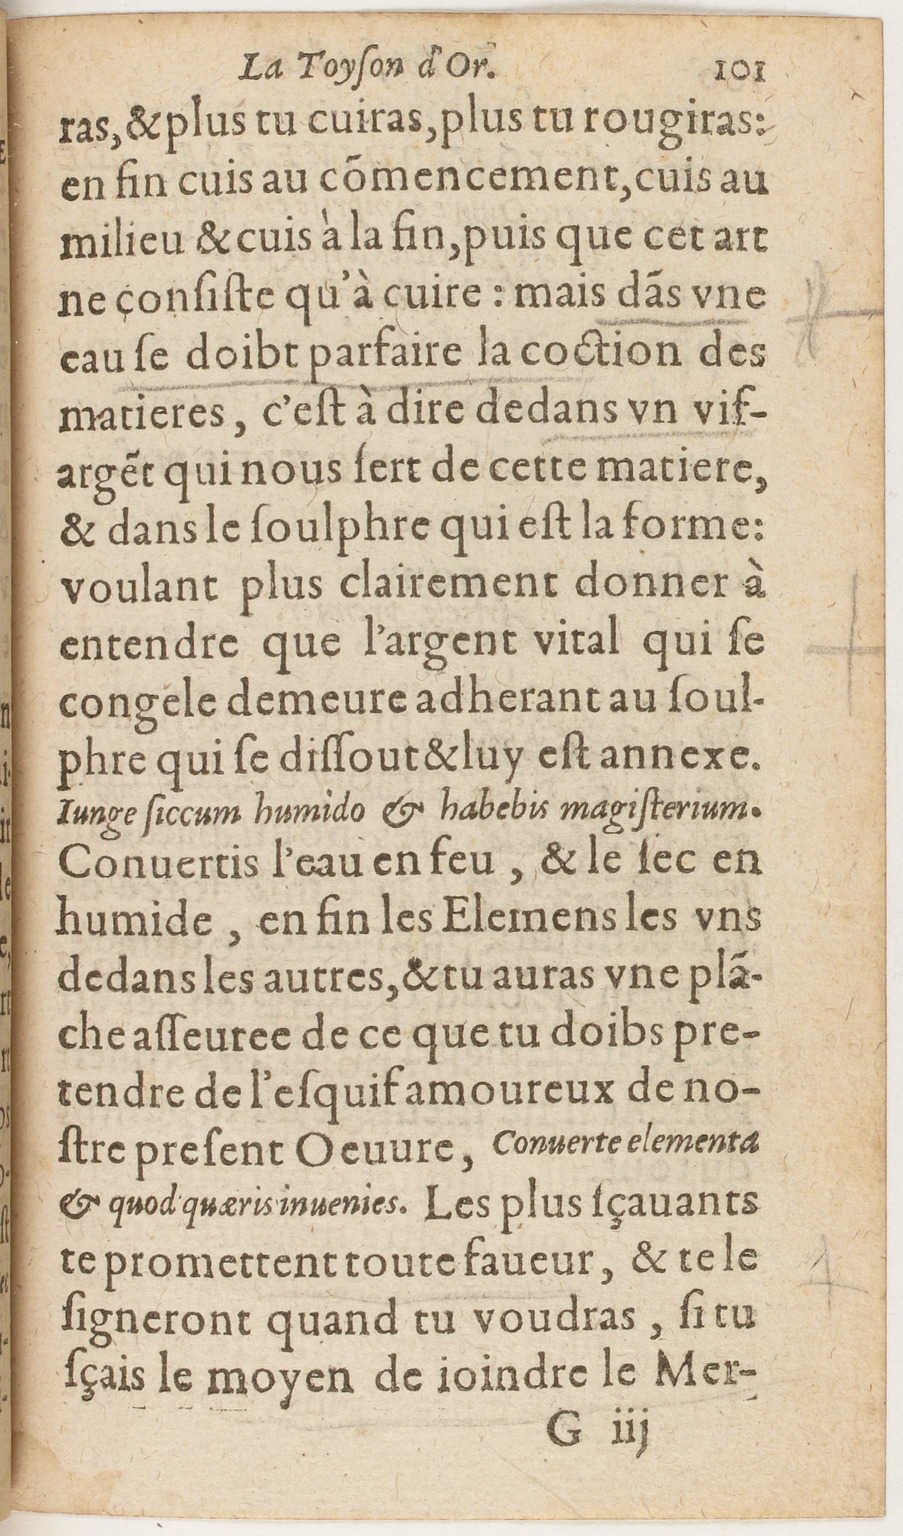 La Toyſon d'Or. 101
ras,&plus tu cuiras,plus tu rougiras:
en fin cuis au cõmencement,cuis au
milieu & cuis à la fin,puis que cet art
ne çonſiſte qu'à cuire : mais dãs vne
eau ſe doibt parfaire la coction des
matieres, c'eſt à dire dedans vn vif-
argẽt qui nous ſert de cette matiere,
& dans le ſoulphre qui eſt la forme:
voulant plus clairement donner à
entendre que l'argent vital qui ſe
congele demeure adherant au ſoul-
phre qui ſe diſſout & luy eſt annexe.
Iunge ſiccum humido & habebis magiſterium.
Conuertis l'eau en feu , & le ſec en
humide , en fin les Elemens les vns
dedans les autres,& tu auras vne plã-
che aſſeuree de ce que tu doibs pre-
tendre de l'eſquif amoureux de no-
ſtre preſent Oeuure, Conuerte elementa
& quod quæris inuenies. Les plus ſçauants
te promettent toute faueur, & te le
ſigneront quand tu voudras , ſi tu
ſçais le moyen de ioindre le Mer-
G iij